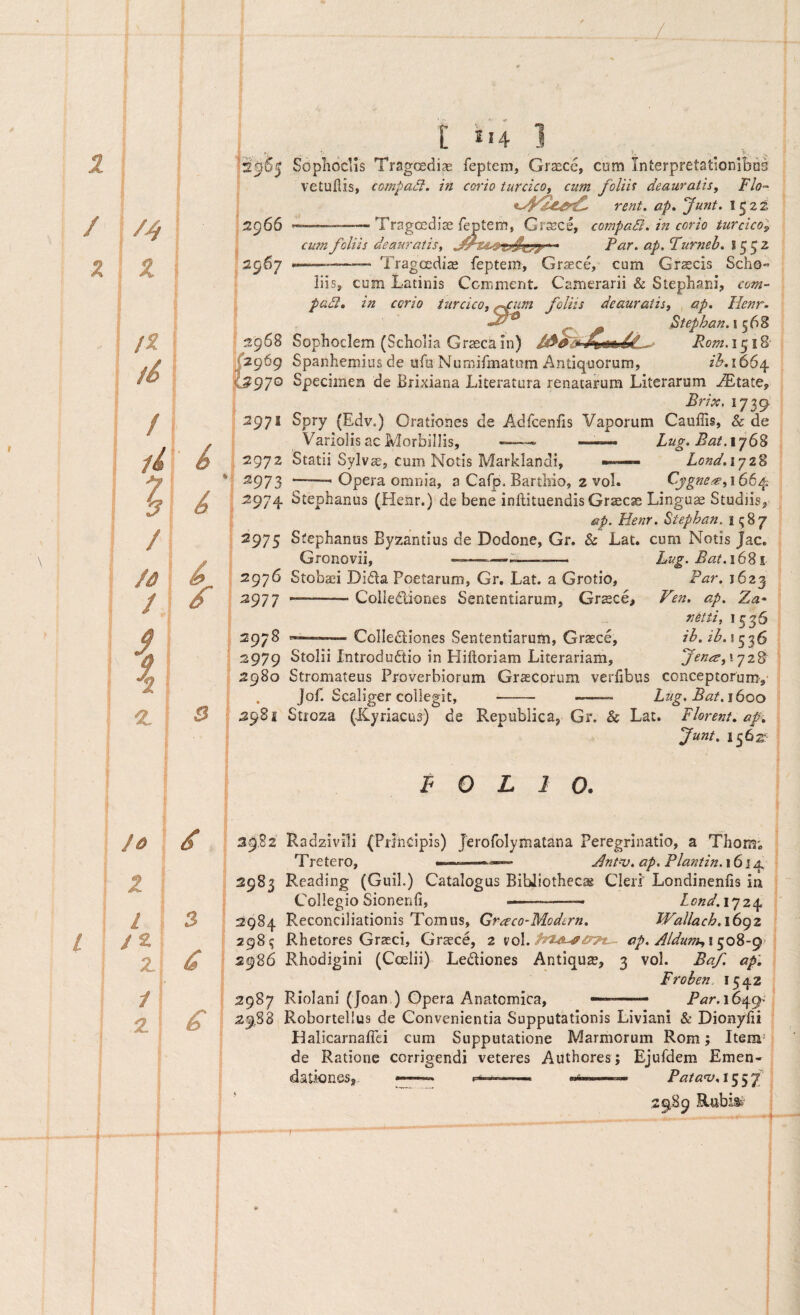 [ 114 ]
2 2965 Sophoclis Tragœdiæ ſeptem, Græcé, cum Interpretationibus
vetuſtis, compact. in corio turcico, cum foliis deauratis, Flo-
rent. ap. Junt. 1522
/ 14 2966 ———— Tragœdiæ ſeptem, Græcé, compact. in corio turcico,
cum foliis deauratis, Par. ap. Turneb. 1552
2 2 2967 ———— Tragœdiæ ſeptem, Græcé, cum Græcis Scho-
liis, cum Latinis Comment. Camerarii & Stephani, com-
pact. in corio turcico, cum foliis deauratis, ap. Henr.
Stephan. 1568
12 2968 Sophoclem (Scholia Græca in) Rom. 1518
16 2969 Spanhemius de uſu Numiſmatum Antiquorum, ib. 1664
2970 Specimen de Brixiana Literatura renatarum Literarum Ætate,
Brix. 1739
/ 2971 Spry (Edv.) Orationes de Adſcenſis Vaporum Cauſſis, & de
Variolis ac Morbillis, —— —— Lug. Bat. 1768
16 6 2972 Statii Sylvæ, cum Notis Marklandi, —— Lond. 1728
7 2973 —— Opera omnia, a Caſp. Barthio, 2 vol. Cygneæ, 1664
3 6 2974 Stephanus (Henr.) de bene inſtituendis Græcæ Linguæ Studiis,
ap. Henr. Stephan. 1587
/ 2975 Stephanus Byzantius de Dodone, Gr. & Lat. cum Notis Jac.
Gronovii, ———— Lug. Bat. 1681
10 6 2976 Stobæi Dicta Poetarum, Gr. Lat. a Grotio, Par. 1623
1 6 2977 ——— Collectiones Sententiarum, Græcé, Ven. ap. Za-
netti, 1536
9 2978 ——— Collectiones Sententiarum, Græcé, ib. ib. 1536
9 2979 Stolii Introductio in Hiſtoriam Literariam, Jenæ, 1728
2 2980 Stromateus Proverbiorum Græcorum verſibus conceptorum,
Joſ. Scaliger collegit, —— —— Lug. Bat. 1600
2 3 2981 Stroza (Kyriacus) de Republica, Gr. & Lat. Florent. ap.
Junt. 1562
FOLIO.
10 6 2982 Radzivili (Principis) Jeroſolymatana Peregrinatio, a Thom.
Tretero, ———— Antv. ap. Plantin. 1614
2 2983 Reading (Guil.) Catalogus Bibliothecæ Cleri Londinenſis in
Collegio Sionenſi, ———— Lond. 1724
1 3 2984 Reconciliationis Tomus, Græco-Modern. Wallach. 1692
1 12 2985 Rhetores Græci, Græcé, 2 vol. ap. Aldum, 1508-9
2 6 2986 Rhodigini (Cœlii) Lectiones Antiquæ, 3 vol. Baſ. ap.
Froben. 1542
1 2987 Riolani (Joan.) Opera Anatomica, ——— Par. 1649
2 6 2988 Robortellus de Convenientia Supputationis Liviani & Dionyſii
Halicarnaſſei cum Supputatione Marmorum Rom; Item
de Ratione corrigendi veteres Authores; Ejuſdem Emen-
dationes, —— —— —— Patav. 1557
2989 Rubis